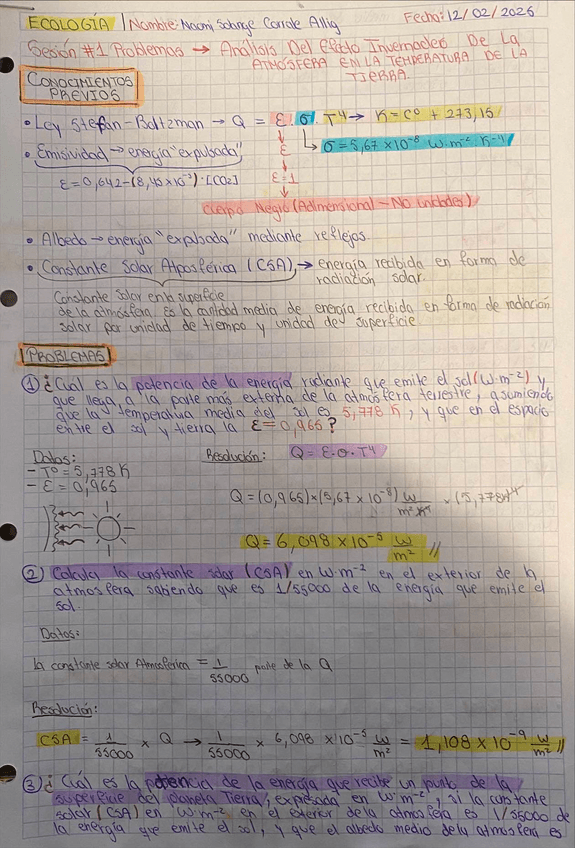 ECOLOGÍA / Nombre: Naomi Solange Corrale Allig Fecha: 12/02/2026
Sesión #1 Problemas → Análisis Del Efecto Invernadero De La
ATMÓSFERA EN LA TEMPERATURA DE LA
TIERRA.
CONOCIMIENTOS
PREVIOS
• Ley Stefan-Boltzman → Q = ε.σ.T⁴ → K = C° + 273,15
ε σ = 5,67 x 10⁻⁸ W.m⁻².K⁻⁴
• Emisividad → energía "expulsada"
ε = 0,642 - (8,45 x 10⁻⁵) . [CO2] ε = 1
Cuerpo Negro (Adimensional - No unidades)
• Albedo → energía "expulsada" mediante reflejos.
• Constante Solar Atmosférica (CSA) → energía recibida en forma de
radiación solar.
Constante Solar en la superficie
de la atmósfera, es la cantidad media de energía recibida en forma de radiación
solar por unidad de tiempo y unidad de superficie
PROBLEMAS
① ¿Cuál es la potencia de la energía radiante que emite el sol (W.m⁻²) y
que llega a la parte más externa de la atmósfera terrestre, asumiendo
que la temperatura media del sol es 5,778 K, y que en el espacio
entre el sol y tierra la ε = 0,965?
Datos: Resolución: Q = ε.σ.T⁴
- T° = 5,778 K
- ε = 0,965
Q = (0,965) x (5,67 x 10⁻⁸) W/m² K⁴ x (5,778)⁴
Q = 6,098 x 10⁻⁵ W/m² //
② Calcula la constante solar (CSA) en W.m⁻² en el exterior de la
atmosfera sabiendo que es 1/55000 de la energía que emite el
sol.
Datos:
la constante solar Atmosférica = 1/55000 parte de la Q
Resolución:
CSA = 1/55000 x Q → 1/55000 x 6,098 x 10⁻⁵ W/m² = 1,108 x 10⁻⁹ W/m² //
③ ¿Cuál es la potencia de la energía que recibe un punto de la
superficie del planeta Tierra, expresada en W.m⁻², si la constante
solar (CSA) en W.m⁻² en el exterior de la atmosfera es 1/55000 de
la energía que emite el sol, y que el albedo medio de la atmosfera es